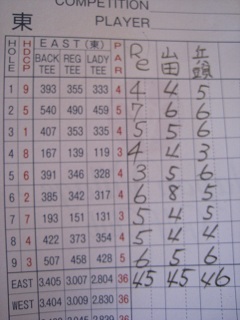 COMPETITION
東 PLAYER
HOLE HDCP EAST(東) BACK TEE REG TEE LADY TEE PAR Re 山田 丘頭
1 9 393 355 333 4 4 4 5
2 5 540 490 459 5 7 6 6
3 1 407 353 335 4 5 5 6
4 8 167 139 119 3 4 4 3
5 6 391 346 328 4 3 5 6
6 2 385 342 317 4 6 8 5
7 7 193 151 131 3 5 4 5
8 4 422 373 354 4 5 4 4
9 3 507 458 428 5 6 5 6
EAST 3.405 3.007 2.804 36 45 45 46
WEST 3.909 2.830 36